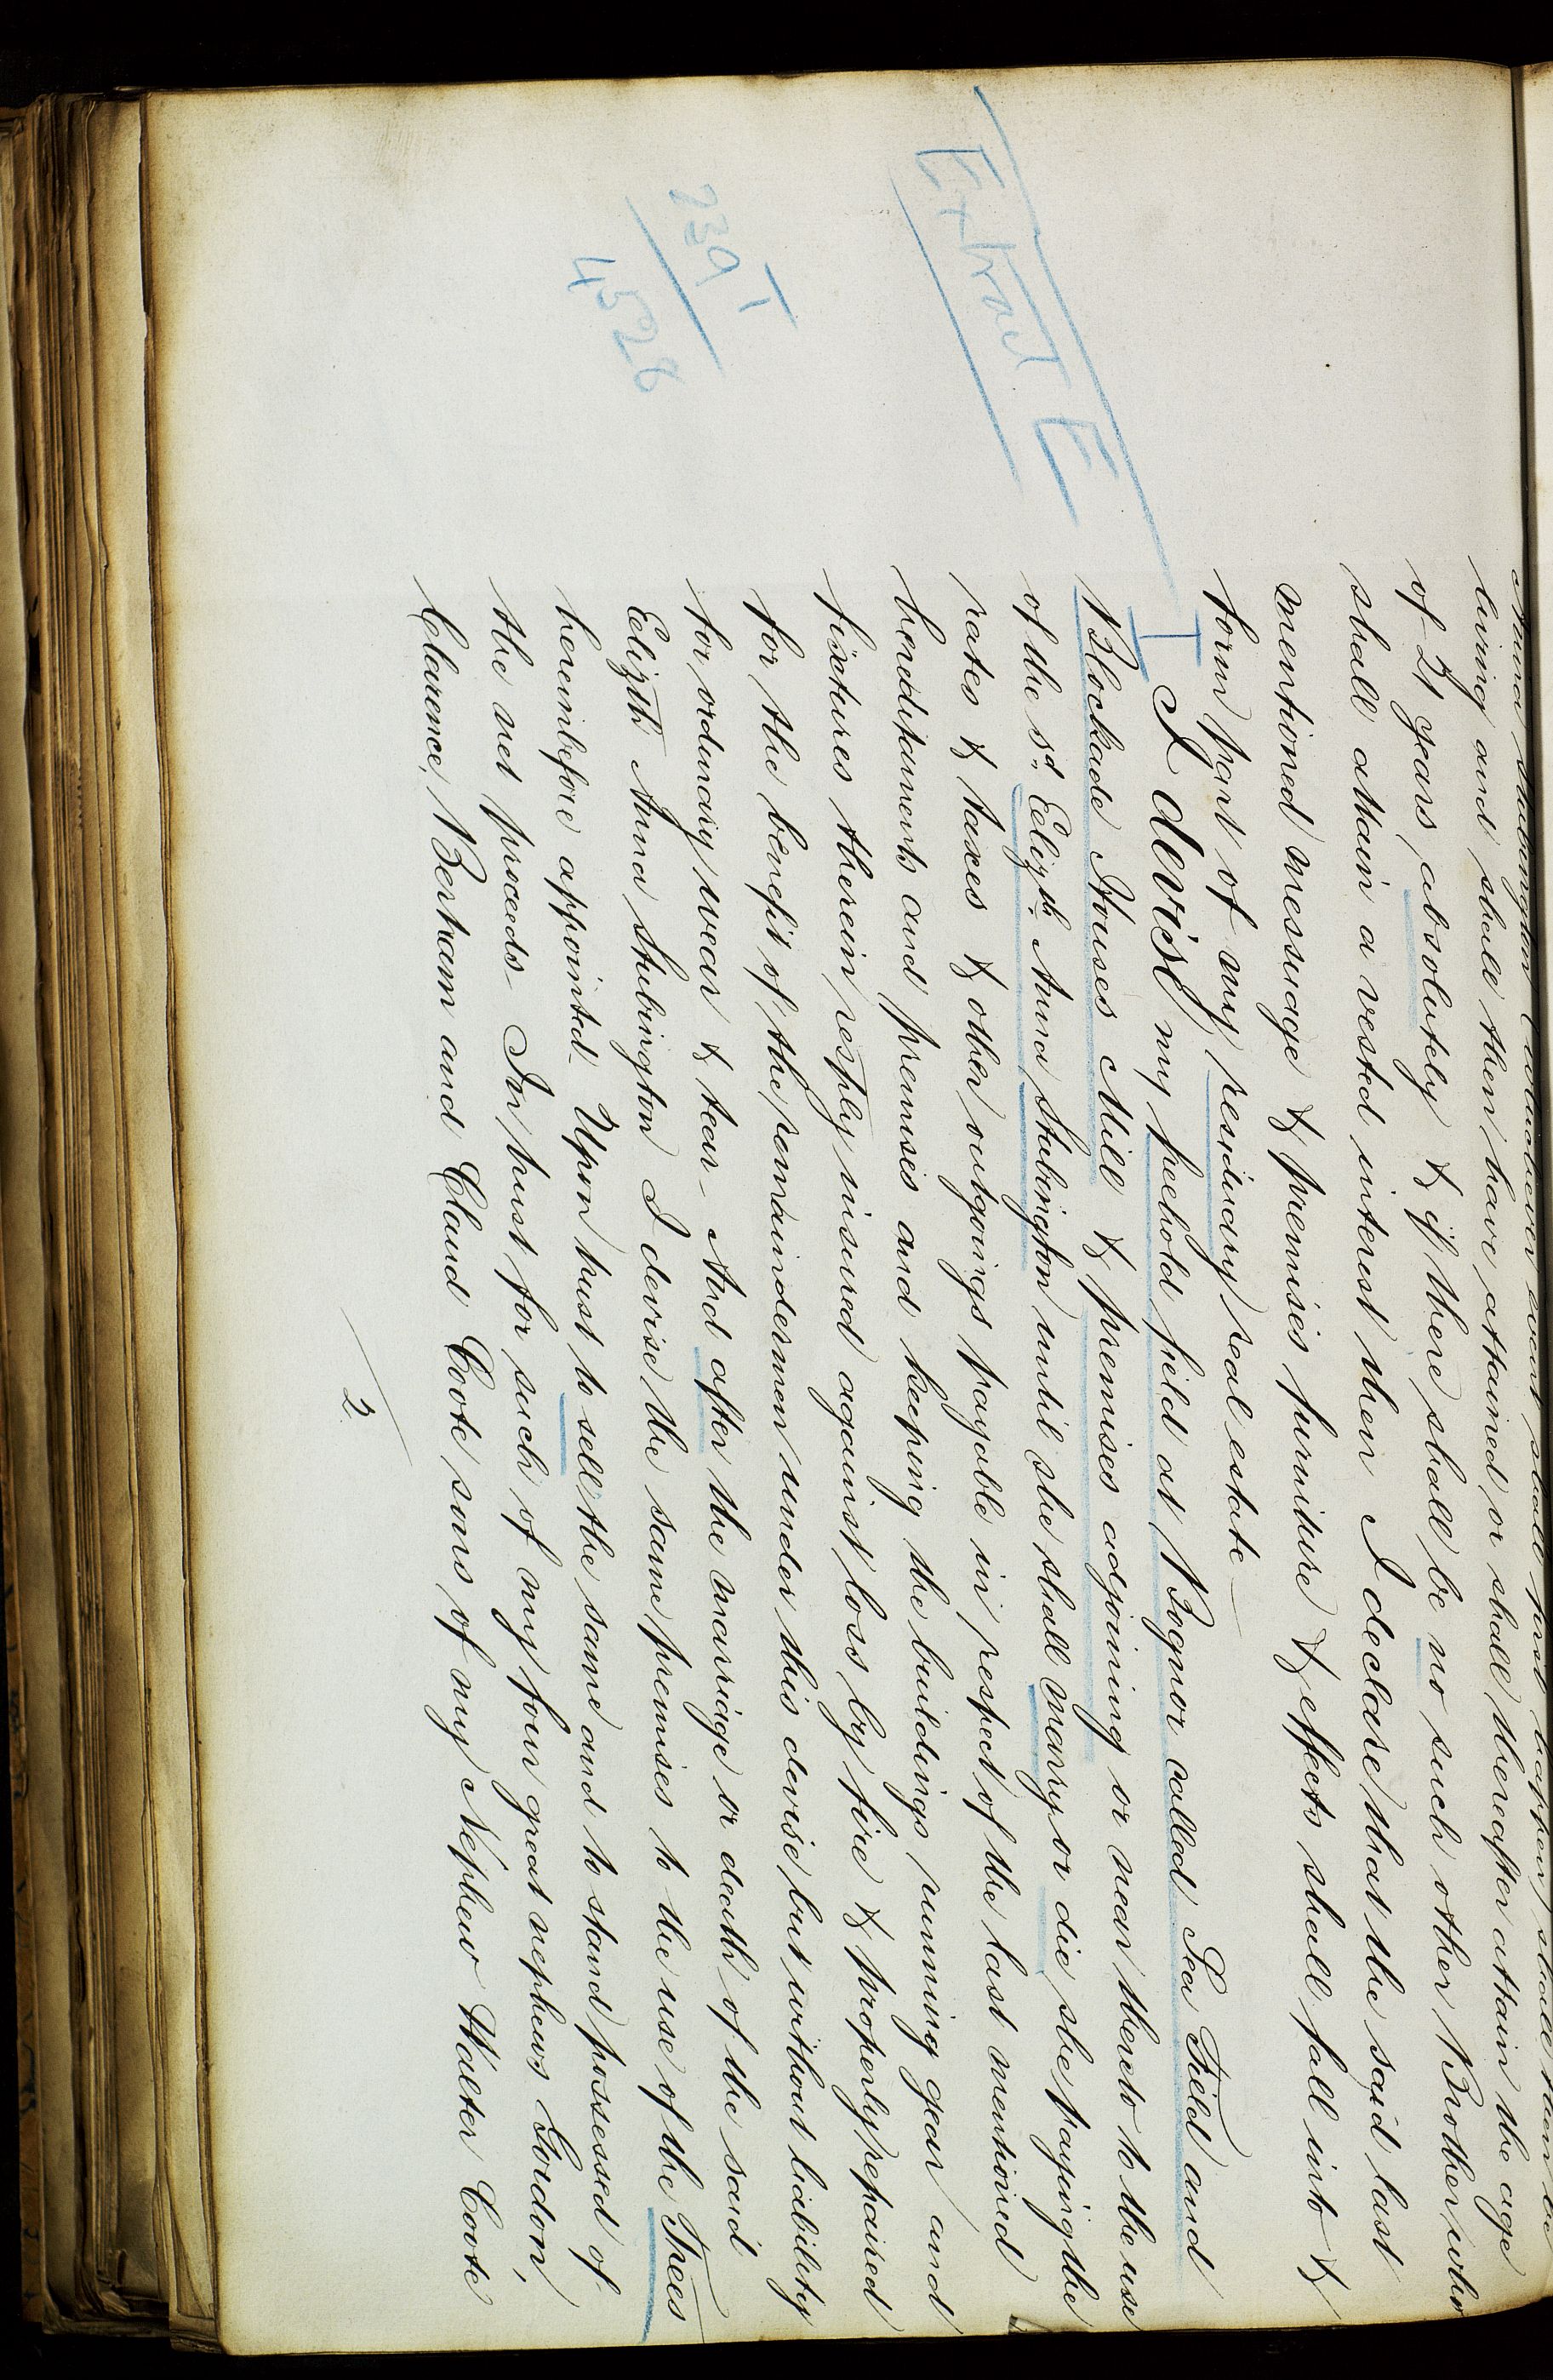 Anna Stubington whichever event shall first happen shall then be
living and shall then have attained or shall thereafter attain the age
of 21 years absolutely & if there shall be no such other Brother who
shall attain a vested interest then I declare that the said last
mentioned messuage & premises furniture & effects shall fall into &
form part of my residuary real estate —
I devise my freehold field at Bognor called Sea Field and
Blockade Houses Mill & premises adjoining or near thereto to the use
of the sd. Elizth. Anna Stubington until she shall marry or die she paying the
rates & taxes & other outgoings payable in respect of the last mentioned
hereditaments and premises and keeping the buildings running gear and
fixtures therein resply insured against loss by fire & properly repaired
for the benefit of the remaindermen under this devise but without liability
for ordinary wear & tear – And after the marriage or death of the said
Elizth Anna Stubington I devise the same premises to the use of the Trees
hereinbefore appointed Upon trust to sell the same and to stand possessed of
the net proceeds – In trust for such of my four great nephews Gordon,
Clarence, Bertram and Claud Coote sons of my Nephew Walter Coote
2
Extract E
I
239
4528